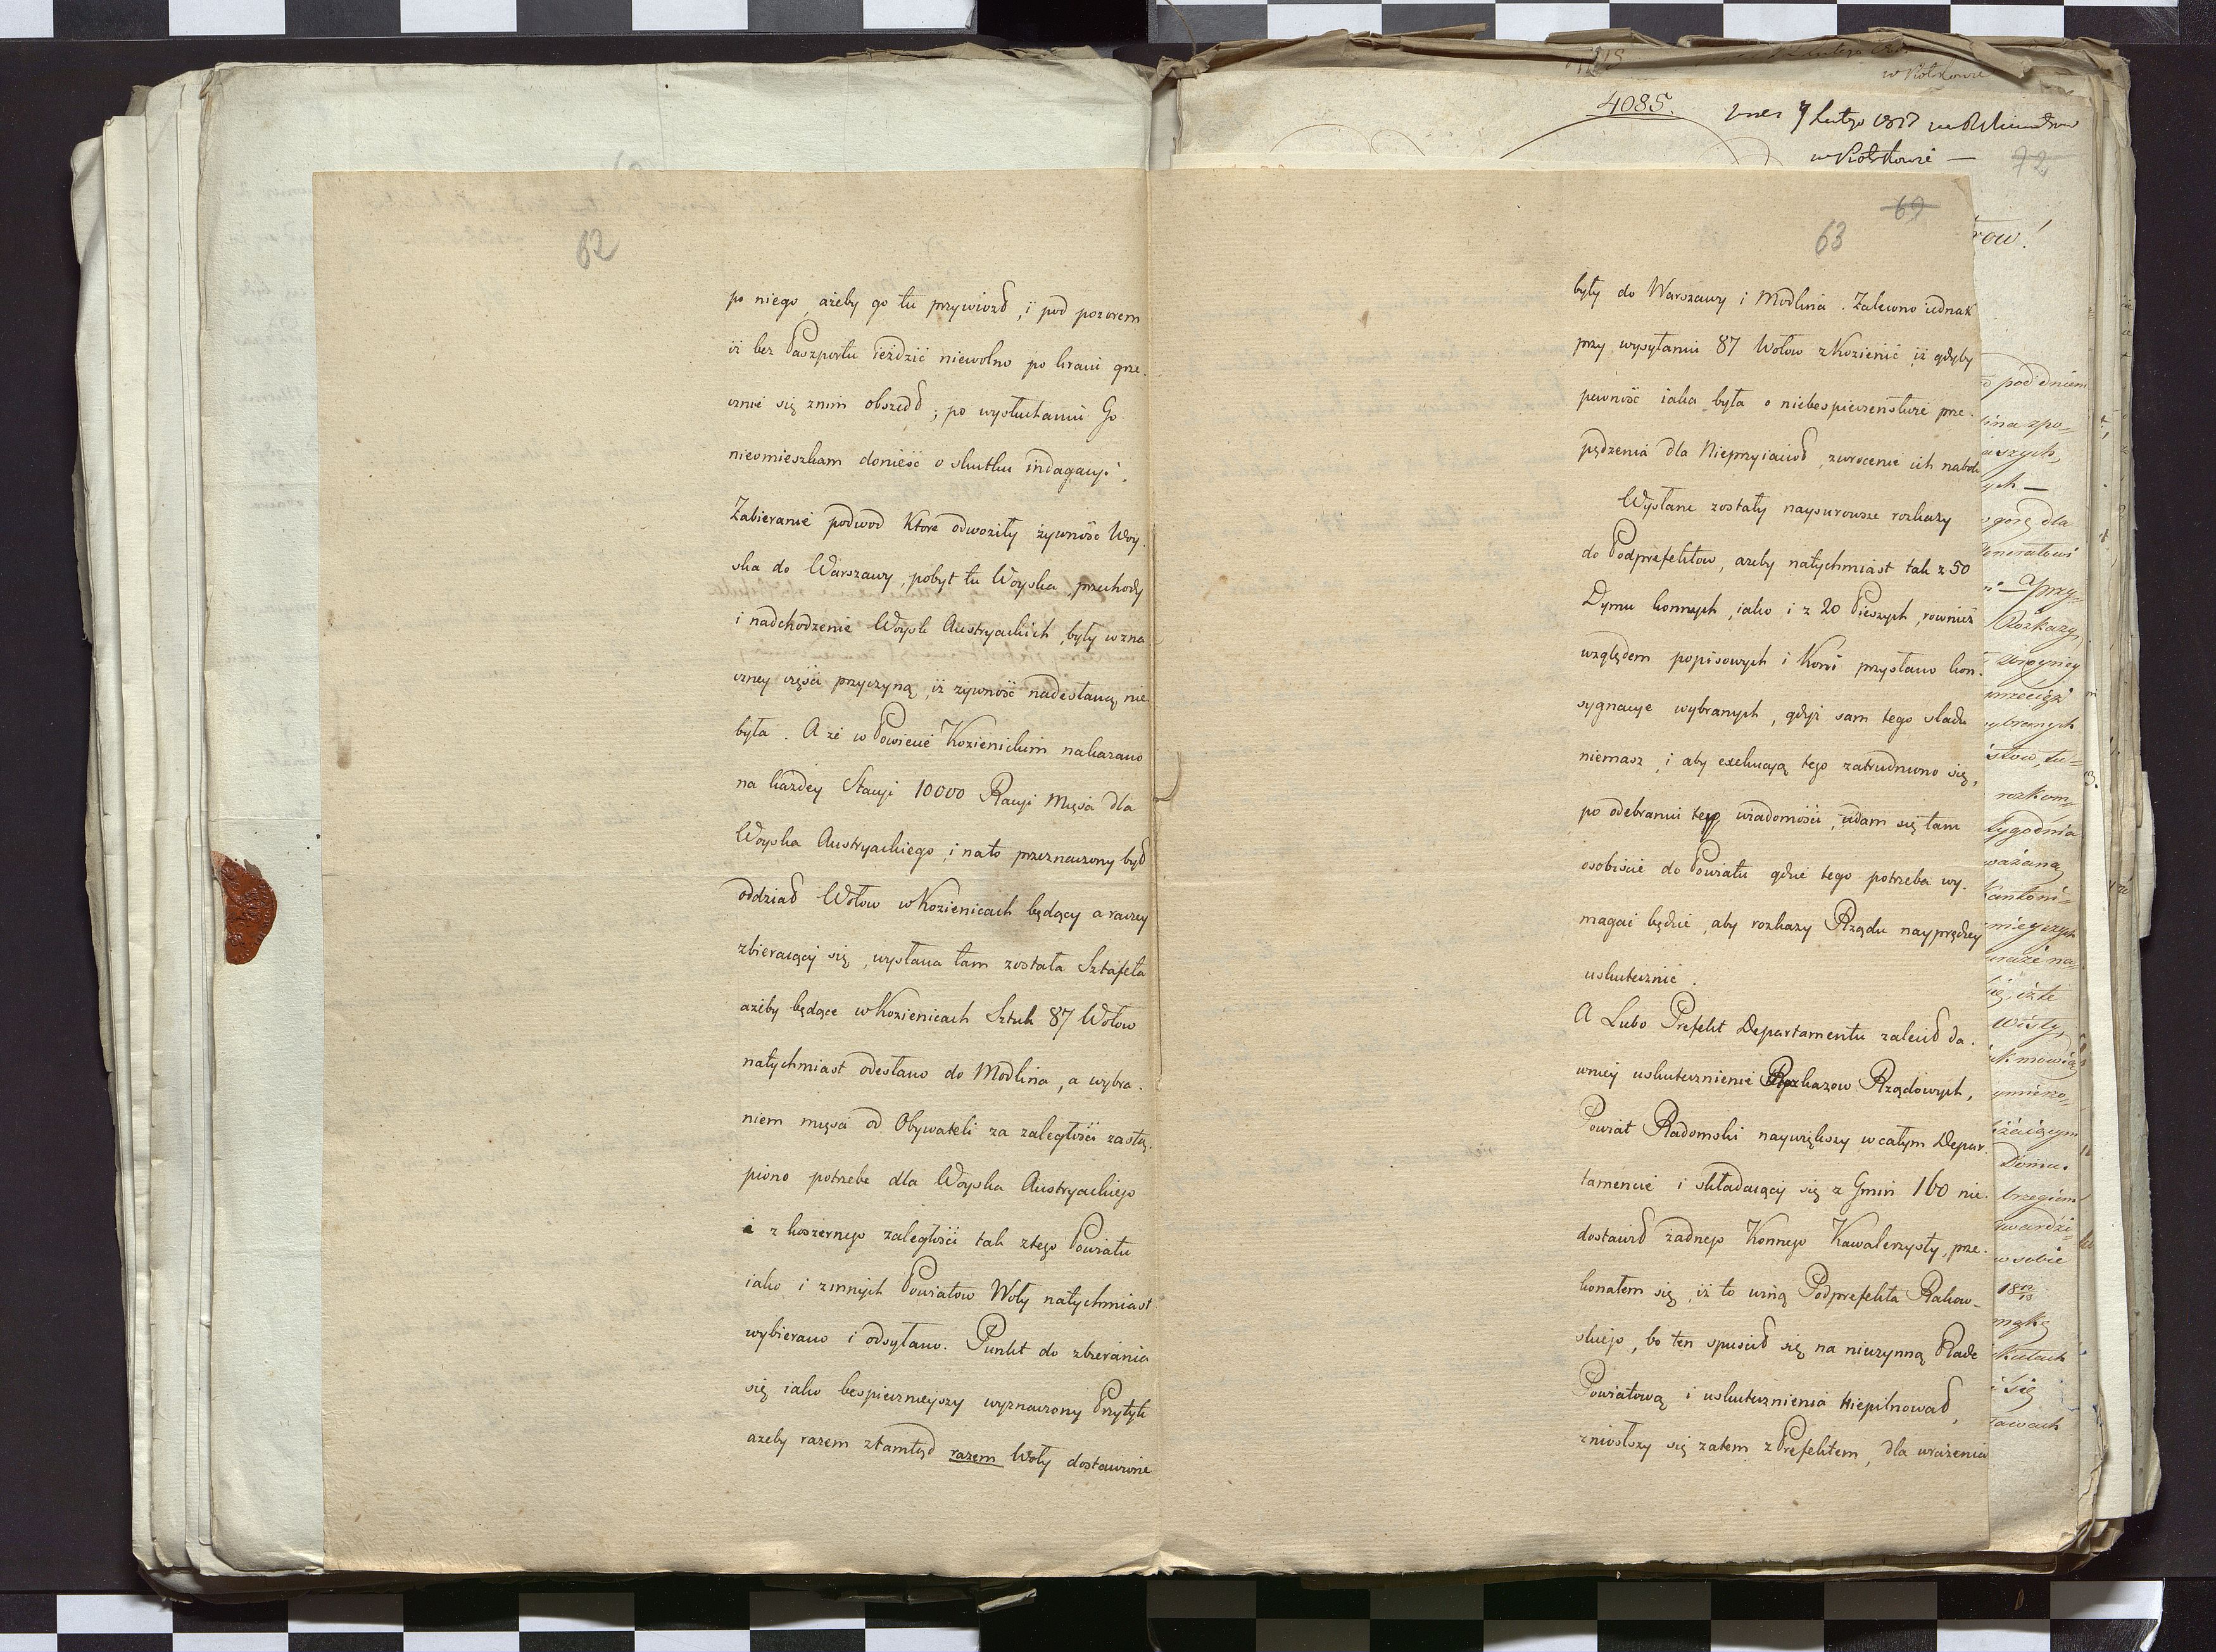 62
po niego, ażeby go tu przywiozł, i pod pozorem
iż bez Paszportu ieździć niewolno po kraiu grze-
cznie się znim obszedł; po wysłuchaniu Go
nieomieszkam donieść o skutku indagacyi.
Zabieranie podwod ktore odwoziły żywność Woy-
ska do Warszawy, pobyt tu Woyska, przechody
i nadchodzenie Woysk Austryackich, były wzna
czney części przyczyną, iż żywność nadesłaną nie
była. A że w Powiecie Kozienickim nakazano
na każdey Stacyi 10000 Racyi Mięsa dla
Woyska Austryackiego, i nato przeznaczony był
oddział Wołow w Kozienicach będący a raczey
zbieraiący się, wysłana tam została Sztafeta
ażeby będące w Kozienicach Sztuk 87 Wołow
natychmiast odesłano do Modlina, a wybra-
niem mięsa od Obywateli za zaległości zastą-
piono potrzebe dla Woyska Austryackiego
i z koszernego zaległości tak ztego Powiatu
iako i zinnych Powiatow Woły natychmiast
wybierano i odsyłano. Punkt do zbierania
się iako bespiecznieyszy wyznaczony Przytyk
azeby razem ztamtąd razem Woły dostawione
4085.
7 Lutego
w Piotrkowie —
72
69
63
były do Warszawy i Modlina. Zalecono iednak
przy wysyłaniu 87 Wołow z Kozienic, iż gdyby
pewność iaka była o niebespieczeństwie prze-
pędzenia dla Nieprzyiacioł, zwrocenie ich nabok
Wysłane zostały naysurowsze rozkazy
do Podprefektow, azeby natychmiast tak z 50
Dymu konnych, iako i z 20 Pieszych, rownież
względem popisowych i Koni przysłano kon-
sygnacye wybranych, gdyż sam tego sladu
niemasz, i aby exekucyą tego zatrudniono się,
po odebraniu tego wiadomości, udam się tam
osobiscie do Powiatu gdzie tego potrzeba wy-
magać będzie, aby rozkazy Rządu nayprędzey
uskutecznić.
A Lubo Prefekt Departamentu zalecił da-
wniey uskutecznienie Rozkazow Rządowych,
Powiat Radomski naywiększy w całym Depar-
tamencie i składaiący się z Gmin 160 nie-
dostawił żadnego Konnego Kawalerzysty, prze-
konałem się, iż to winą Podprefekta Rakow-
skiego, bo ten spuscił się na nieczynną Rade
Powiatową i uskutecznienia niepilnował,
zniosłszy się zatem z Prefektem, dla urażenia